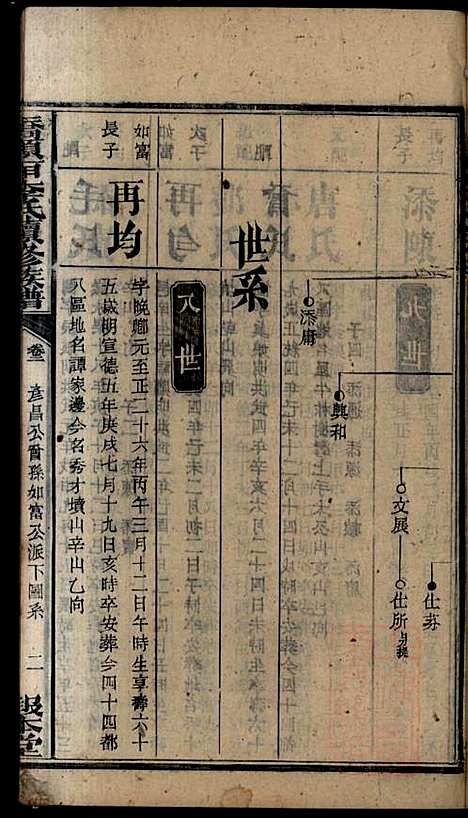 仕芬
文展 仕所
興和
添庸
世系
八世
再均
如富
長子
字晚鄉元至正二十六年丙午三月十二日午時生享壽六十
五歲明宣德五年庚戌七月十九日亥時卒安葬今四十四都
八區地名譚家邊今名秀才墳山辛山乙向
氏續修族譜
卷三
彥昌公裔孫如富公派下圖系
二
報本堂